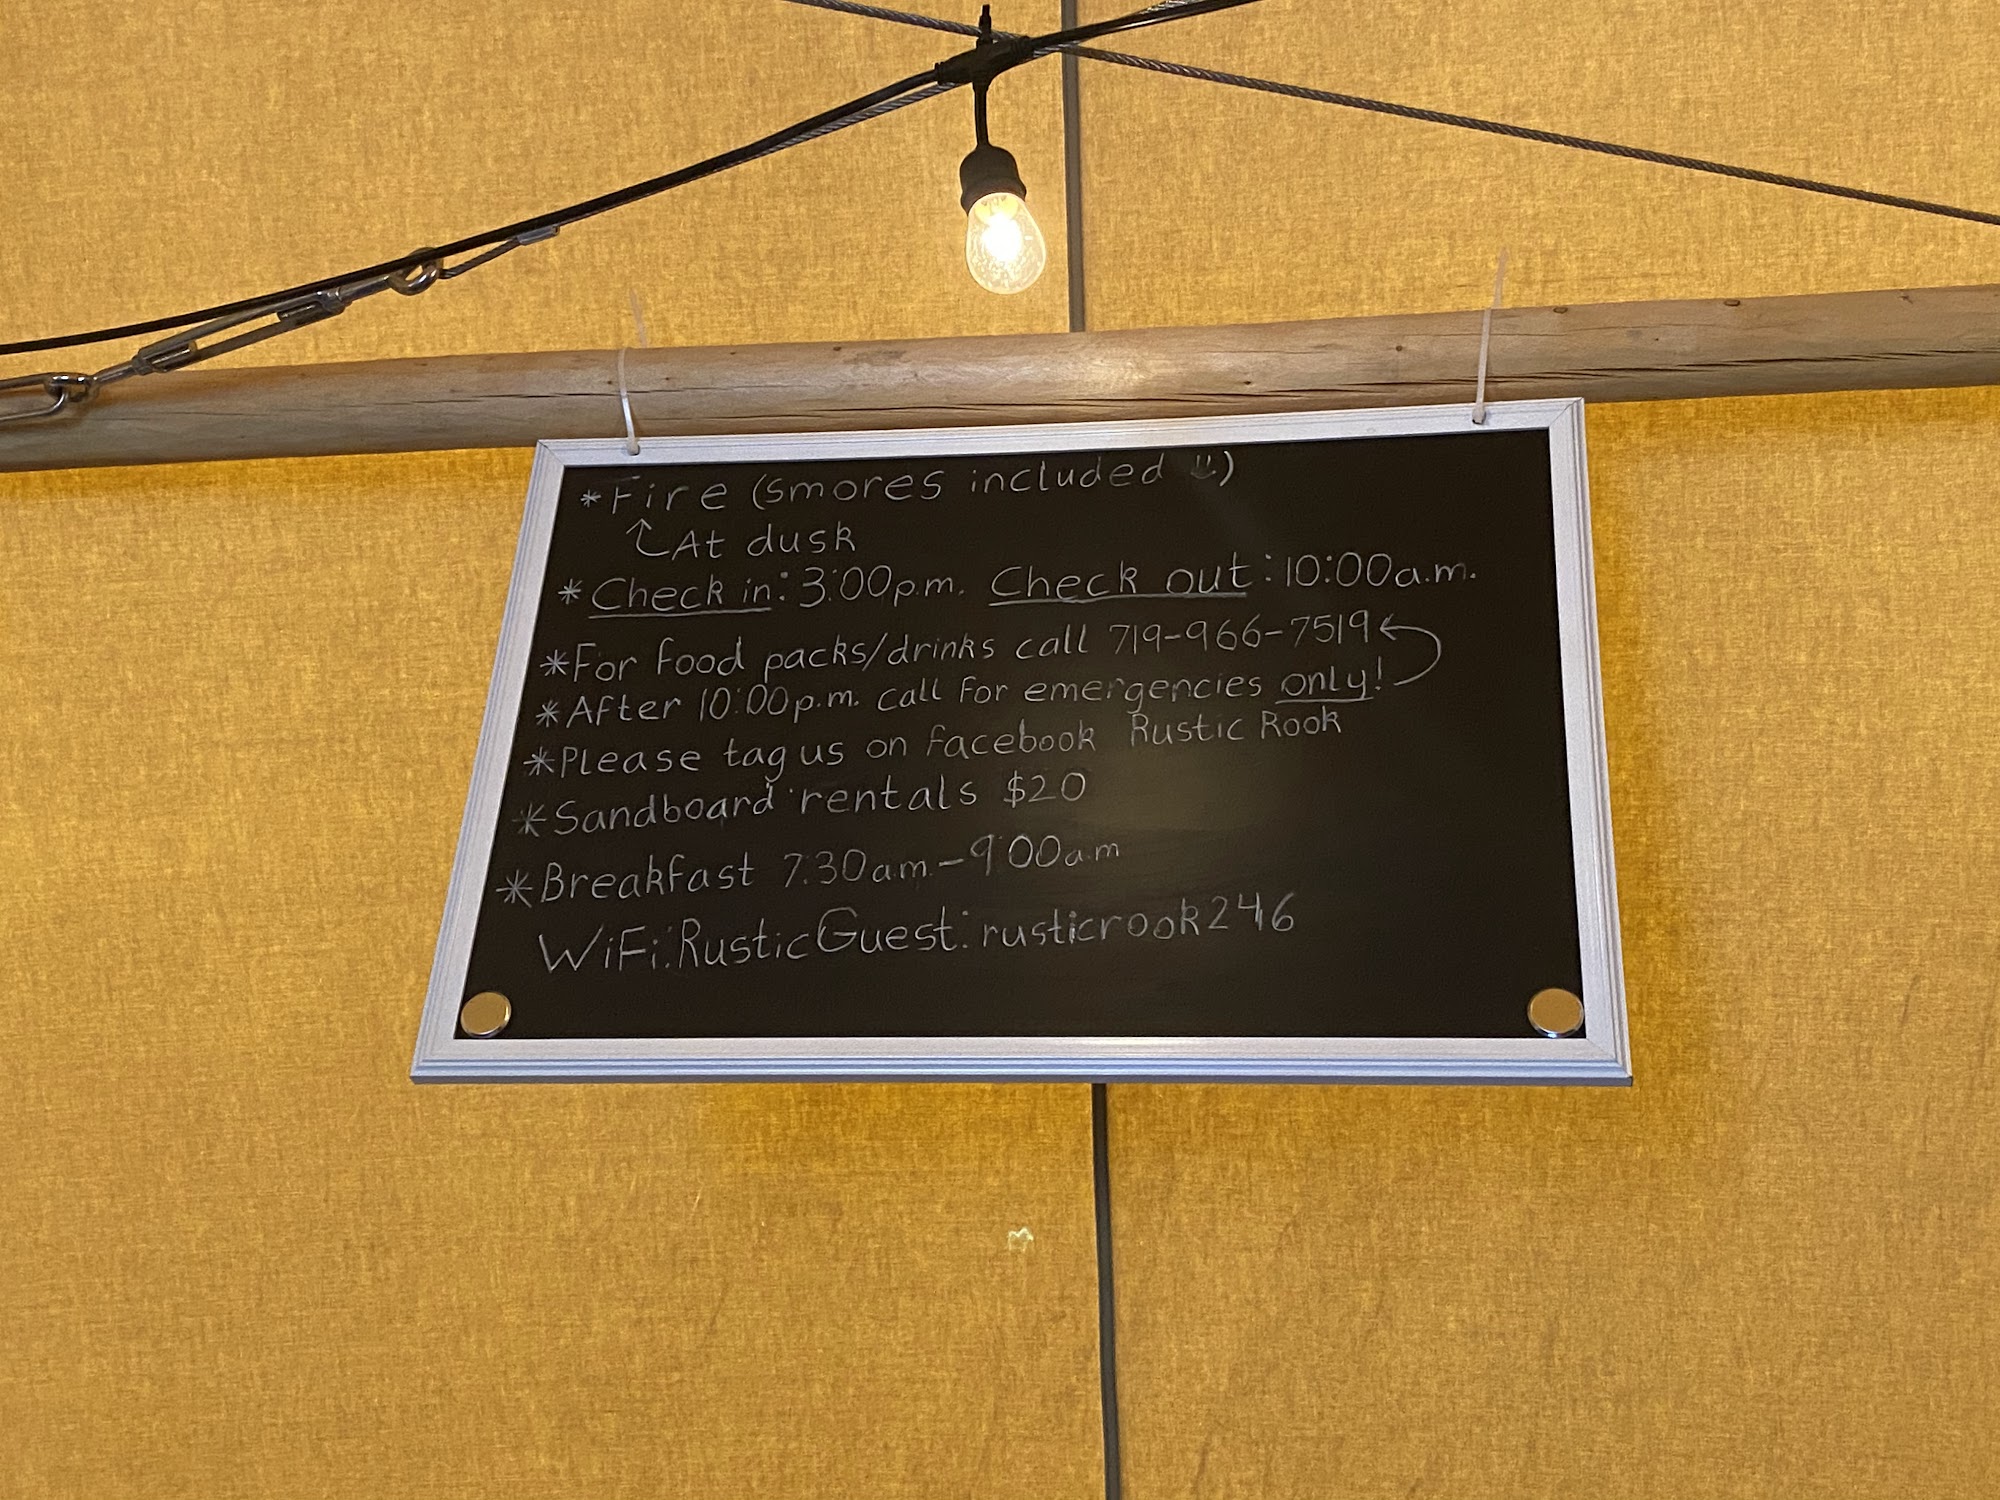 *Fire (smores included :))
At dusk
*Check in: 3:00p.m. Check out: 10:00a.m.
*For food packs/drinks call 719-966-7519
*After 10:00p.m. call for emergencies only!
*Please tag us on facebook Rustic Rook
*Sandboard rentals $20
*Breakfast 7:30am-9:00a.m
WiFi: RusticGuest: rusticrook246